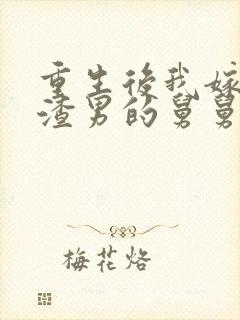 重生後我嫁
渣男的舅舅
梅花烙